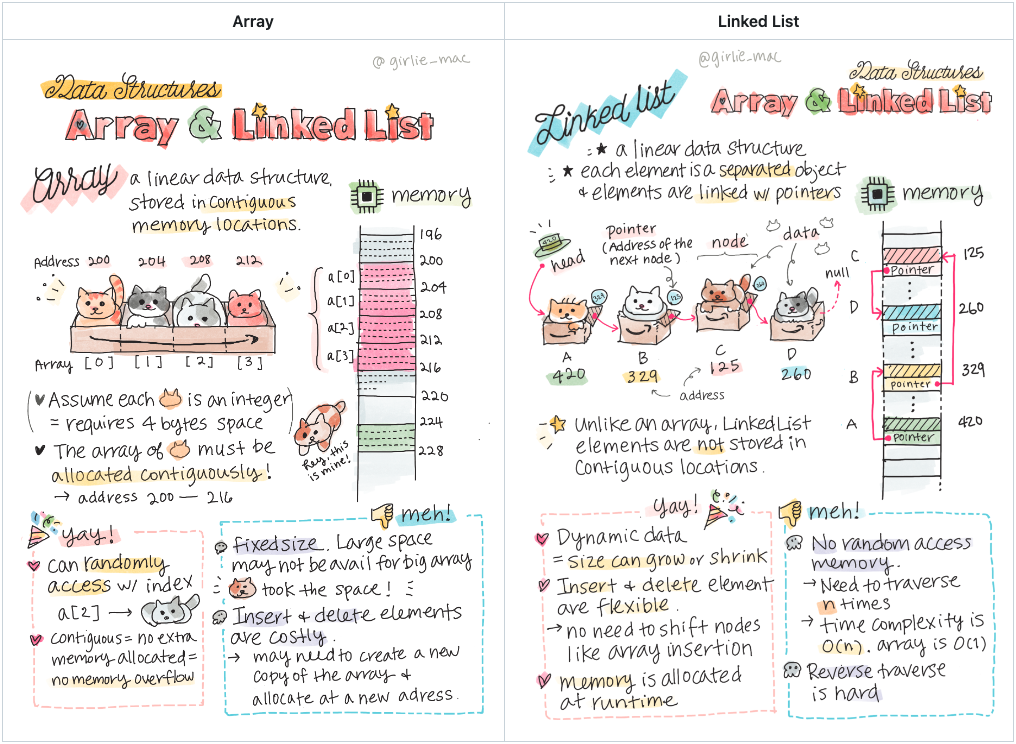 Array
@girlie_mac
Data Structures
Array & Linked List
Array
a linear data structure,
stored in contiguous
memory locations.
memory
196
200
204
208
212
216
220
224
228
a[0]
a[1]
a[2]
a[3]
Address 200 204 208 212
Array [0] [1] [2] [3]
Assume each is an integer
= requires 4 bytes space
The array of must be
allocated contiguously!
→ address 200 — 216
hey, this
is mine!
yay!
can randomly
access w/ index
a[2] →
contiguous = no extra
memory allocated =
no memory overflow
meh!
fixed size. Large space
may not be avail for big array
took the space!
Insert & delete elements
are costly.
→ may need to create a new
copy of the array &
allocate at a new adress.
Linked List
@girlie_mac
Data Structures
Array & Linked List
Linked list
★ a linear data structure
★ each element is a separated object
& elements are linked w/ pointers
memory
420
head
pointer
(Address of the
next node)
node
data
null
329
125
260
A
420
B
329
C
125
D
260
address
C
125
pointer
D
260
pointer
B
329
pointer
A
420
pointer
Unlike an array, Linked List
elements are not stored in
contiguous locations.
yay!
Dynamic data
= size can grow or shrink
Insert & delete element
are flexible.
→ no need to shift nodes
like array insertion
memory is allocated
at runtime
meh!
No random access
memory.
→ Need to traverse
n times
→ time complexity is
O(n). array is O(1)
Reverse traverse
is hard